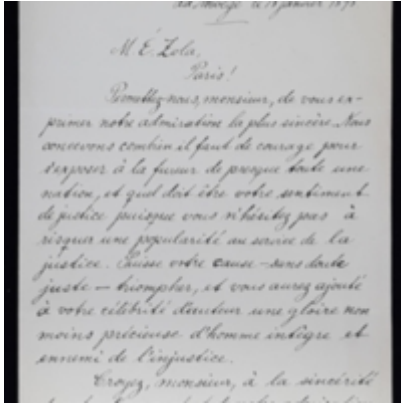 Norvège le 18 janvier 1898
M. É. Zola,
Paris!
Permettez-nous, monsieur, de vous ex-
primer notre admiration la plus sincère. Nous
concevons combien il faut de courage pour
s'exposer à la fureur de presque toute une
nation, et quel doit être votre sentiment
de justice puisque vous n'hésitez pas à
risquer une popularité au service de la
justice. Puisse votre cause – sans doute
juste – triompher, et vous aurez ajouté
à votre célébrité d'auteur une gloire non
moins précieuse d'homme intègre et
ennemi de l'injustice.
Croyez, monsieur, à la sincérité